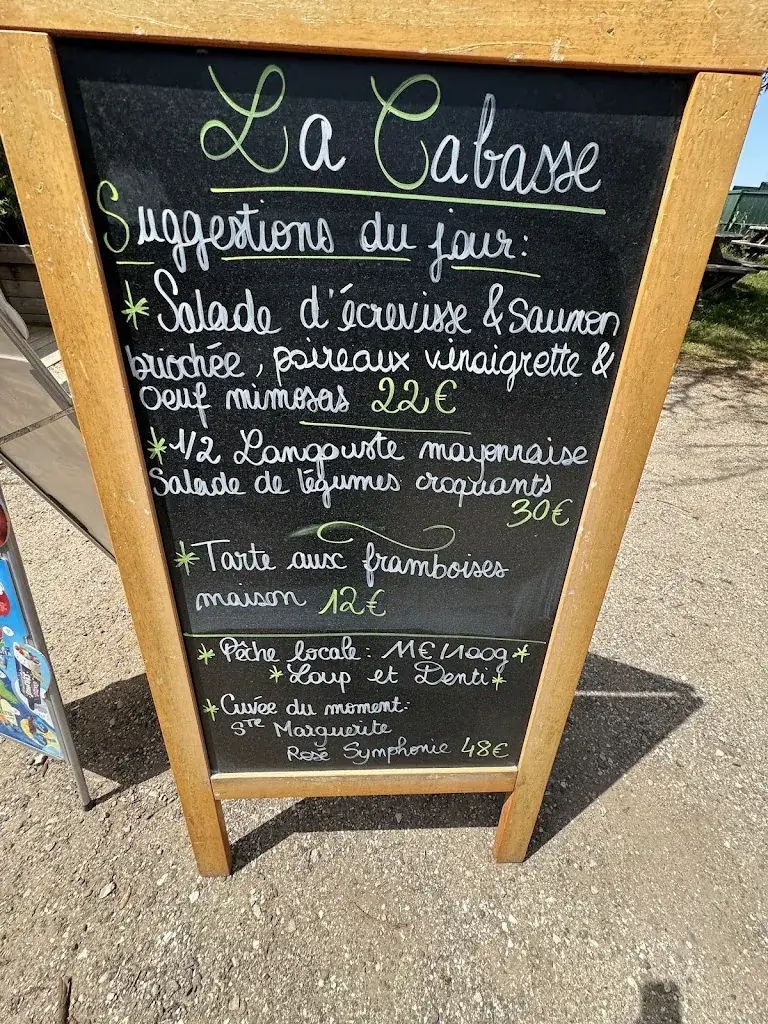 La Cabasse
Suggestions du jour:
* Salade d'écrevisse & Saumon
briochée, poireaux vinaigrette &
Oeuf mimosas 22€
* 1/2 Langouste mayonnaise
Salade de légumes croquants
30€
* Tarte aux framboises
maison 12€
* Pêche locale: 11€/100g *
* Loup et Denti *
* Cuvée du moment:
Ste Marguerite
Rosé Symphonie 48€